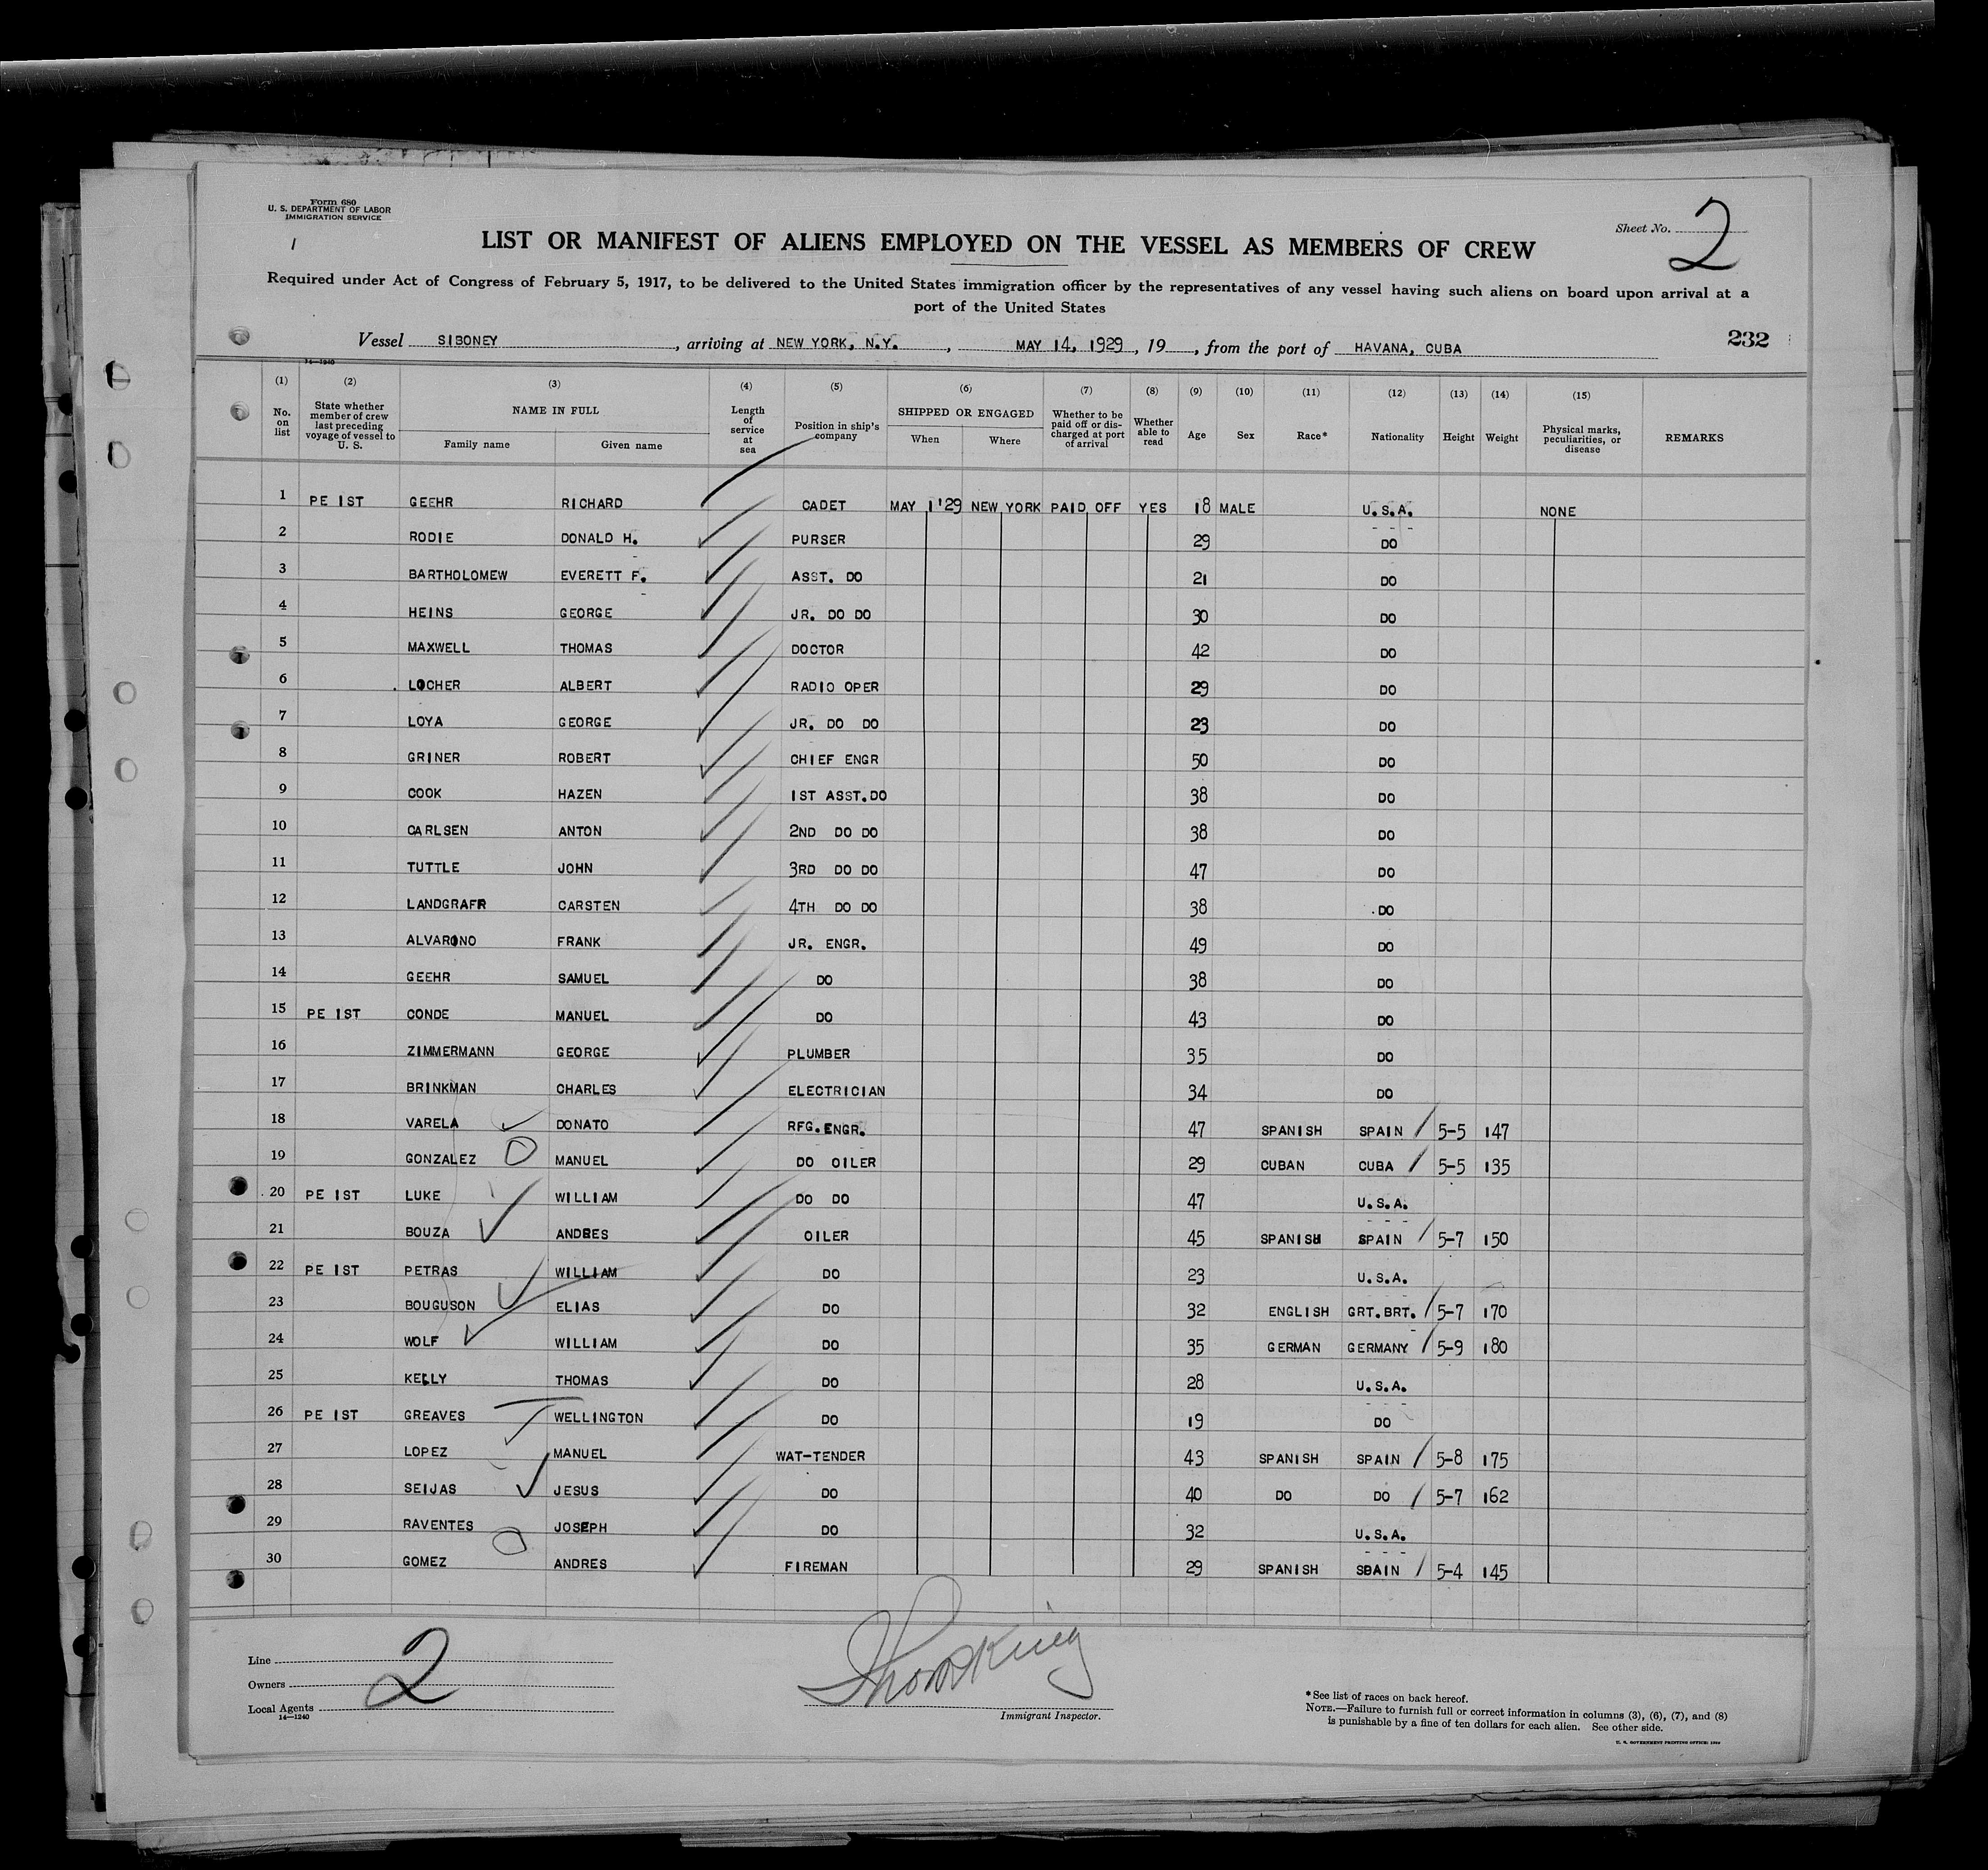 Form 680
U. S. DEPARTMENT OF LABOR
IMMIGRATION SERVICE
Sheet No. 2
LIST OR MANIFEST OF ALIENS EMPLOYED ON THE VESSEL AS MEMBERS OF CREW
Required under Act of Congress of February 5, 1917, to be delivered to the United States immigration officer by the representatives of any vessel having such aliens on board upon arrival at a
port of the United States
Vessel SIBONEY, arriving at NEW YORK, N.Y., MAY 14, 1929, 19, from the port of HAVANA, CUBA
232
14—1240
(1) (2) (3) (4) (5) (6) (7) (8) (9) (10) (11) (12) (13) (14) (15)
No. on list
State whether member of crew last preceding voyage of vessel to U. S.
NAME IN FULL
Family name
Given name
Length of service at sea
Position in ship's company
SHIPPED OR ENGAGED
When
Where
Whether to be paid off or discharged at port of arrival
Whether able to read
Age
Sex
Race*
Nationality
Height
Weight
Physical marks, peculiarities, or disease
REMARKS
1 PE IST GEEHR RICHARD CADET MAY 1'29 NEW YORK PAID OFF YES 18 MALE U.S.A. NONE
2 RODIE DONALD H. PURSER 29 DO
3 BARTHOLOMEW EVERETT F. ASST. DO 21 DO
4 HEINS GEORGE JR. DO DO 30 DO
5 MAXWELL THOMAS DOCTOR 42 DO
6 LOCHER ALBERT RADIO OPER 29 DO
7 LOYA GEORGE JR. DO DO 23 DO
8 GRINER ROBERT CHIEF ENGR 50 DO
9 COOK HAZEN 1ST ASST.DO 38 DO
10 CARLSEN ANTON 2ND DO DO 38 DO
11 TUTTLE JOHN 3RD DO DO 47 DO
12 LANDGRAFF CARSTEN 4TH DO DO 38 DO
13 ALVARONO FRANK JR. ENGR. 49 DO
14 GEEHR SAMUEL DO 38 DO
15 PE IST CONDE MANUEL DO 43 DO
16 ZIMMERMANN GEORGE PLUMBER 35 DO
17 BRINKMAN CHARLES ELECTRICIAN 34 DO
18 VARELA DONATO RFG.ENGR. 47 SPANISH SPAIN 5-5 147
19 GONZALEZ MANUEL DO OILER 29 CUBAN CUBA 5-5 135
20 PE IST LUKE WILLIAM DO DO 47 U.S.A.
21 BOUZA ANDRES OILER 45 SPANISH SPAIN 5-7 150
22 PE IST PETRAS WILLIAM DO 23 U.S.A.
23 BOUGUSON ELIAS DO 32 ENGLISH GRT.BRT. 5-7 170
24 WOLF WILLIAM DO 35 GERMAN GERMANY 5-9 180
25 KELLY THOMAS DO 28 U.S.A.
26 PE IST GREAVES WELLINGTON DO 19 DO
27 LOPEZ MANUEL WAT-TENDER 43 SPANISH SPAIN 5-8 175
28 SEIJAS JESUS DO 40 DO DO 5-7 162
29 RAVENTES JOSEPH DO 32 U.S.A.
30 GOMEZ ANDRES FIREMAN 29 SPANISH SPAIN 5-4 145
Line
Owners
Local Agents
14—1240
2
Immigrant Inspector.
*See list of races on back hereof.
NOTE.—Failure to furnish full or correct information in columns (3), (6), (7), and (8)
is punishable by a fine of ten dollars for each alien. See other side.